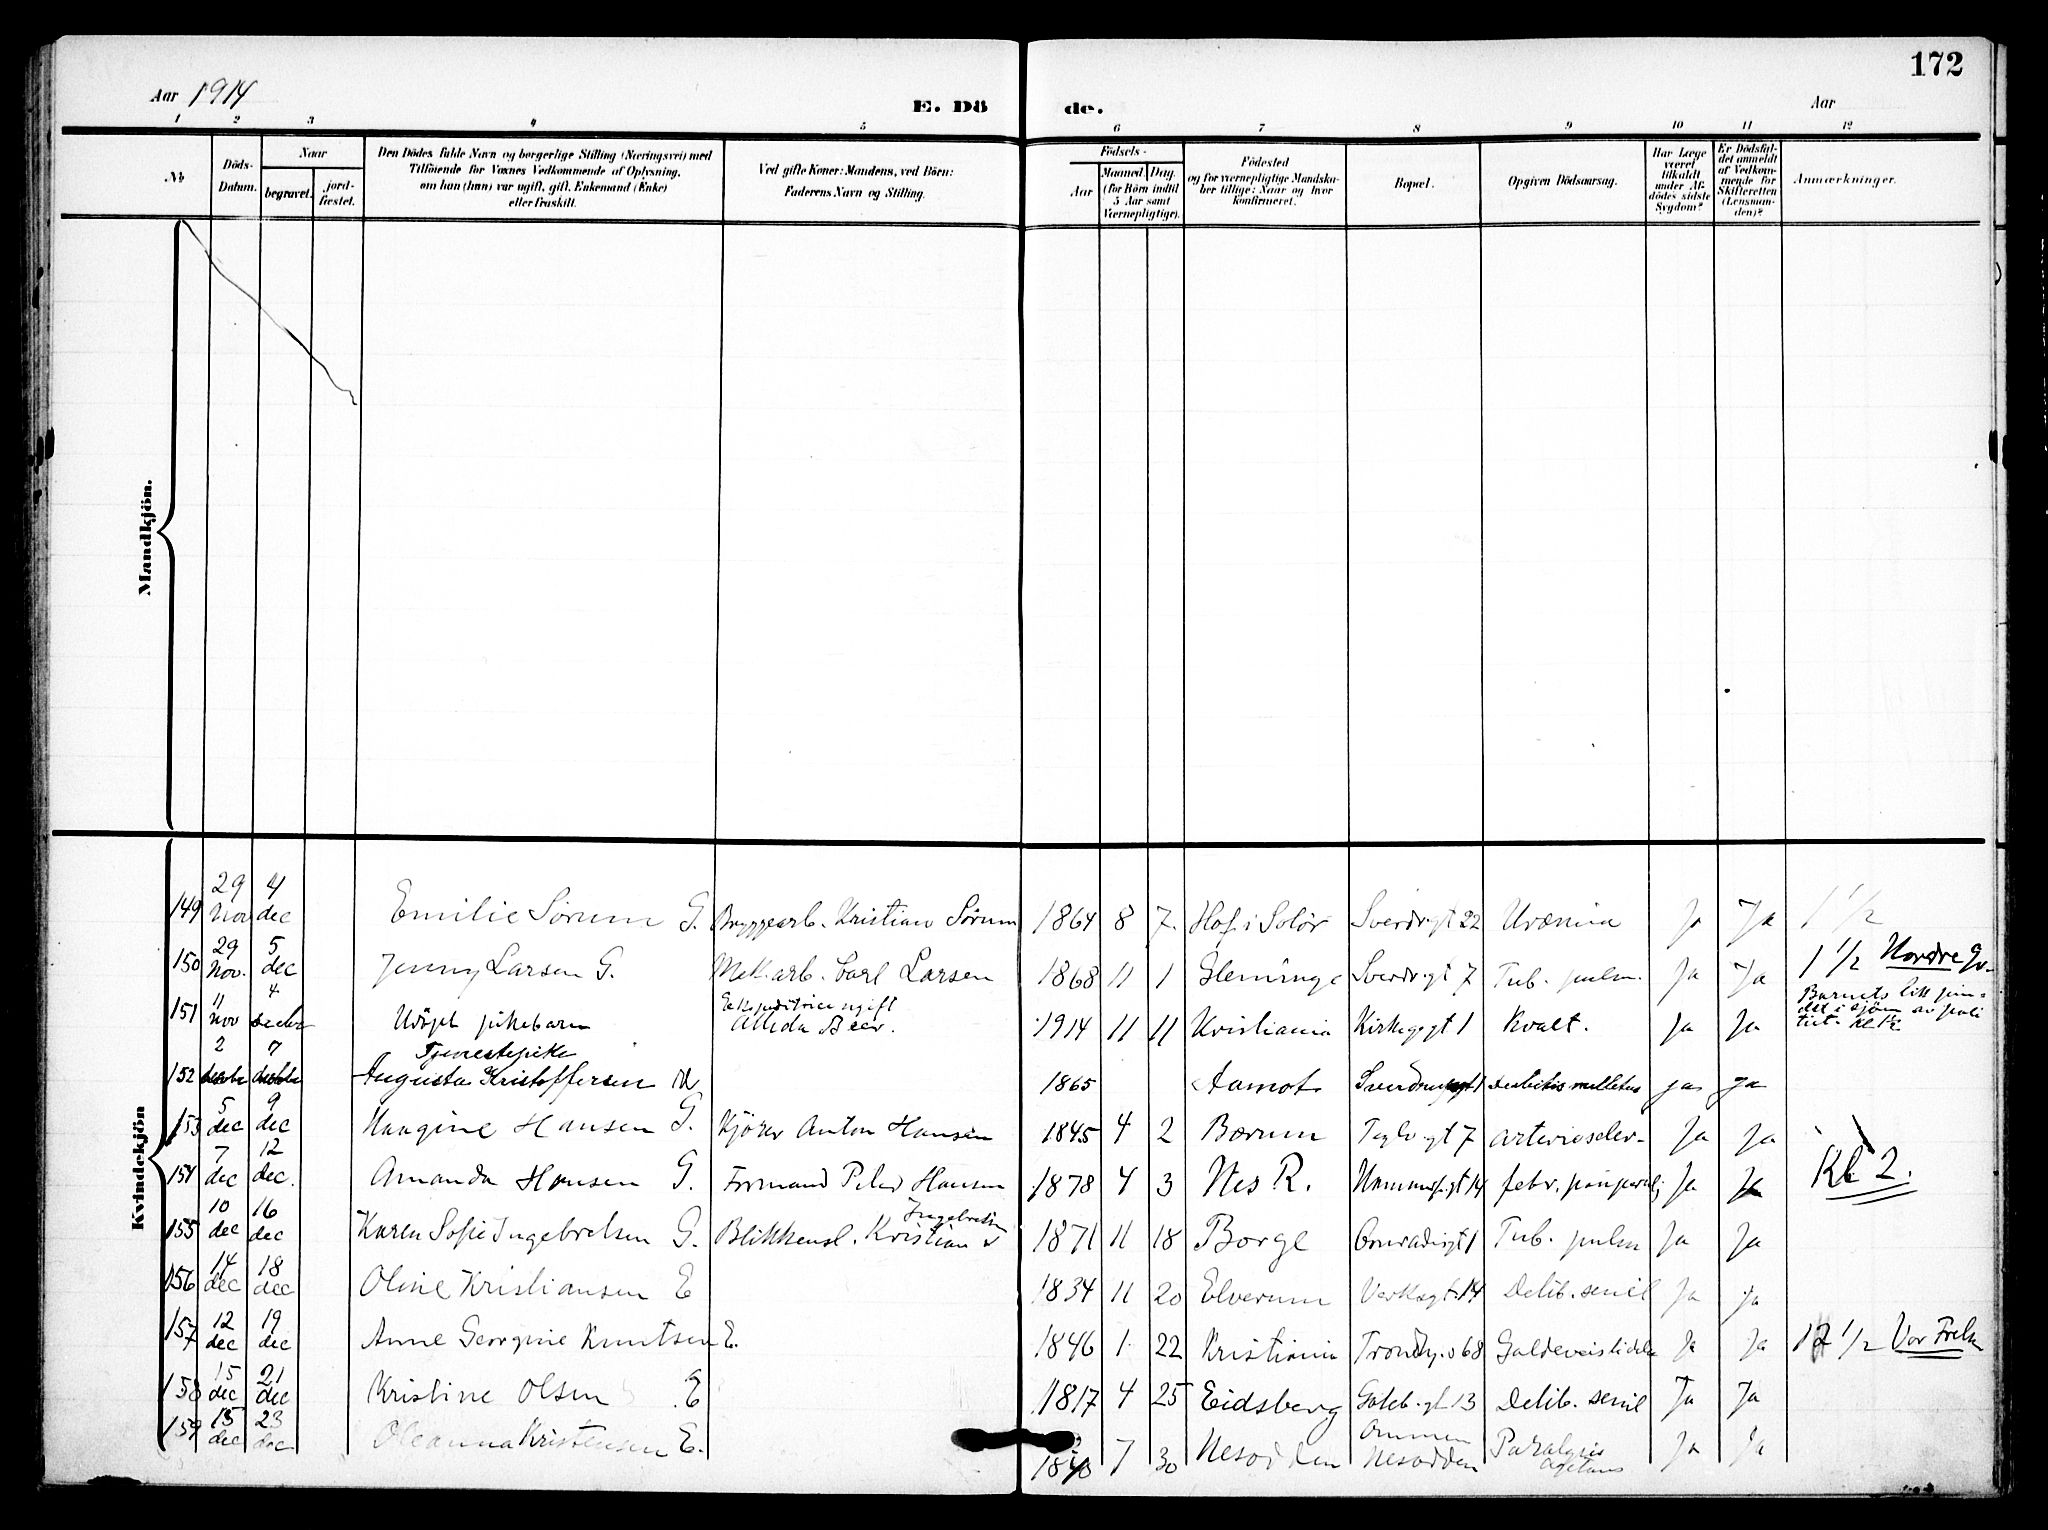 172
Aar 1914
E. Dö de.
Aar
1 2 3 4 5 6 7 8 9 10 11 12
No
Döds-Datum.
Naar
begravet.
jord-fæstet.
Den Dödes fulde Navn og borgerlige Stilling (Næringsvei) med
Tilföiende for Voxnes Vedkommende af Oplysning,
om han (hun) var ugift, gift, Enkemand (Enke)
eller fraskilt.
Ved gifte Koner: Mandens, ved Börn:
Faderens Navn og Stilling.
Födsels-
Aar
Maaned. Dag.
(for Börn indtil
5 Aar samt
Værnepligtige).
Födested
og for værnepligtige Mandska-
ber tillige: Naar og hvor
konfirmeret.
Bopæl.
Opgiven Dödsaarsag.
Har Læge
været
tilkaldt
under Af-
dödes sidste
Sygdom?
Er Dödsfal-
det anmeldt
af Vedkom-
mende for
Skifteretten
(Lensman-
den)?
Anmærkninger.
Mandkjön.
Kvindekjön
149 29 Nov 4 dec Emilie Sörum G. Bryggearb. Kristian Sörum 1864 8 7. Hof i Solör Sverdr.gt 22 Uræmia Ja Ja 1 1/2
150 29 Nov. 5 dec Jenny Larsen G. Mek.arb. Carl Larsen 1868 11 1 Glemminge Sverdr.gt 7 Tub. pulm. Ja Ja 1 1/2 Nordre Gr.
151 11 Nov 4 Udöpt pikebarn Ekspeditrice ugift Alida 1914 11 11 Kristiania Kirkegt 1 Kvalt. Ja Ja Barnets lik fun-
det i sjöen av poli
tiet. Kl 1 1/2
152 2 7 Tjenestepike
Augusta Kristoffersen U 1865 Aamot 1 mellitus ja ja
153 5 dec 9 dec Haagine Hansen G. Kjörer Anton Hansen 1845 4 2 Bærum Teglv.gt 7 Arterioscler. Ja Ja
154 7 dec 12 dec. Amanda Hansen G. Formand Peder Hansen 1878 4 3 Nes R. febr. Ja Ja Kl 2.
155 10 dec 16 dec Karen Sofie Ingebretsen G. Blikkensl. Kristian Ingebretsen 1871 11 18 Borge Conradisgt 1 Tub. pulm Ja Ja
156 14 dec 18 dec Oline Kristiansen E 1834 11 20 Elverum Verksgt. 14 Debil. senil Ja Ja
157 12 dec 19 dec Anne Georgine Knutsen E. 1846 1. 22 Kristiania Trondhj.v 68 Galdeveislidelse Ja Ja 12 1/2 Vor Frels
158 15 dec 21 dec Kristine Olsen E 1817 4 25 Eidsberg Göteb.gt 13 Debil. senil Ja Ja
159 15 dec 23 dec Oleanna Kristensen E. 7 30 Nesodden Ommen
Nesodden Paralysis
agitans Ja Ja